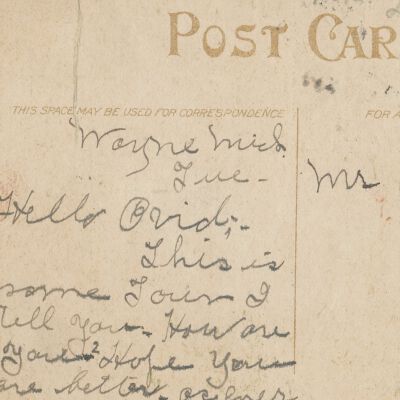 POST CAR
THIS SPACE MAY BE USED FOR CORRESPONDENCE
FOR A
Wayne Mich.
Tue-
Mr
Hello Ovid;-
This is
some Town I
tell you. How are
you? Hope you
are better.